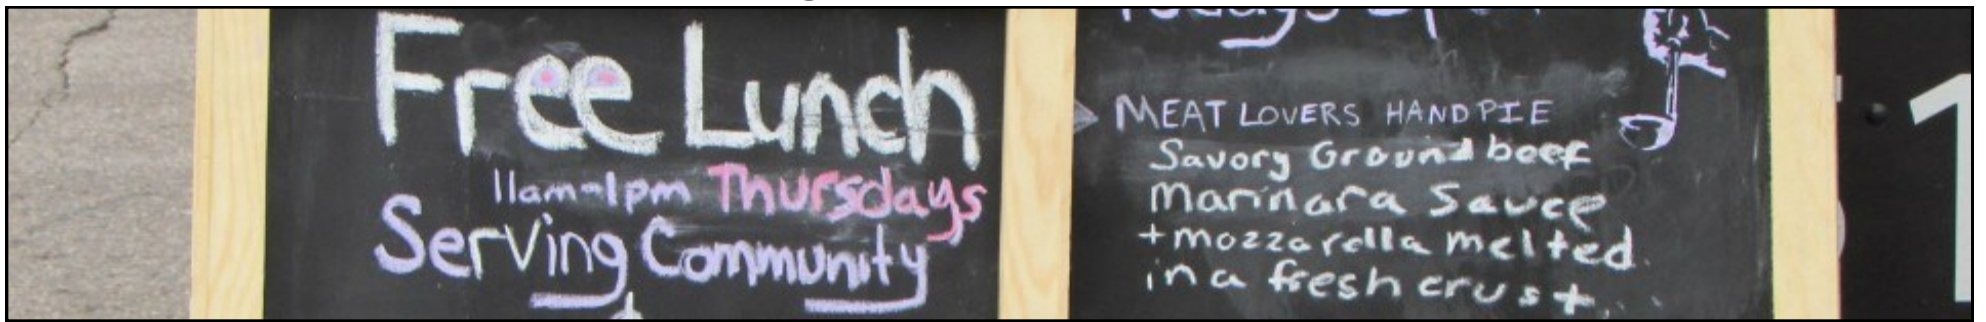 Free Lunch
11am-1pm Thursdays
Serving Community
Todays
MEAT LOVERS HANDPIE
Savory Ground beef
Marinara Sauce
+ mozzarella melted
in a fresh crust
1